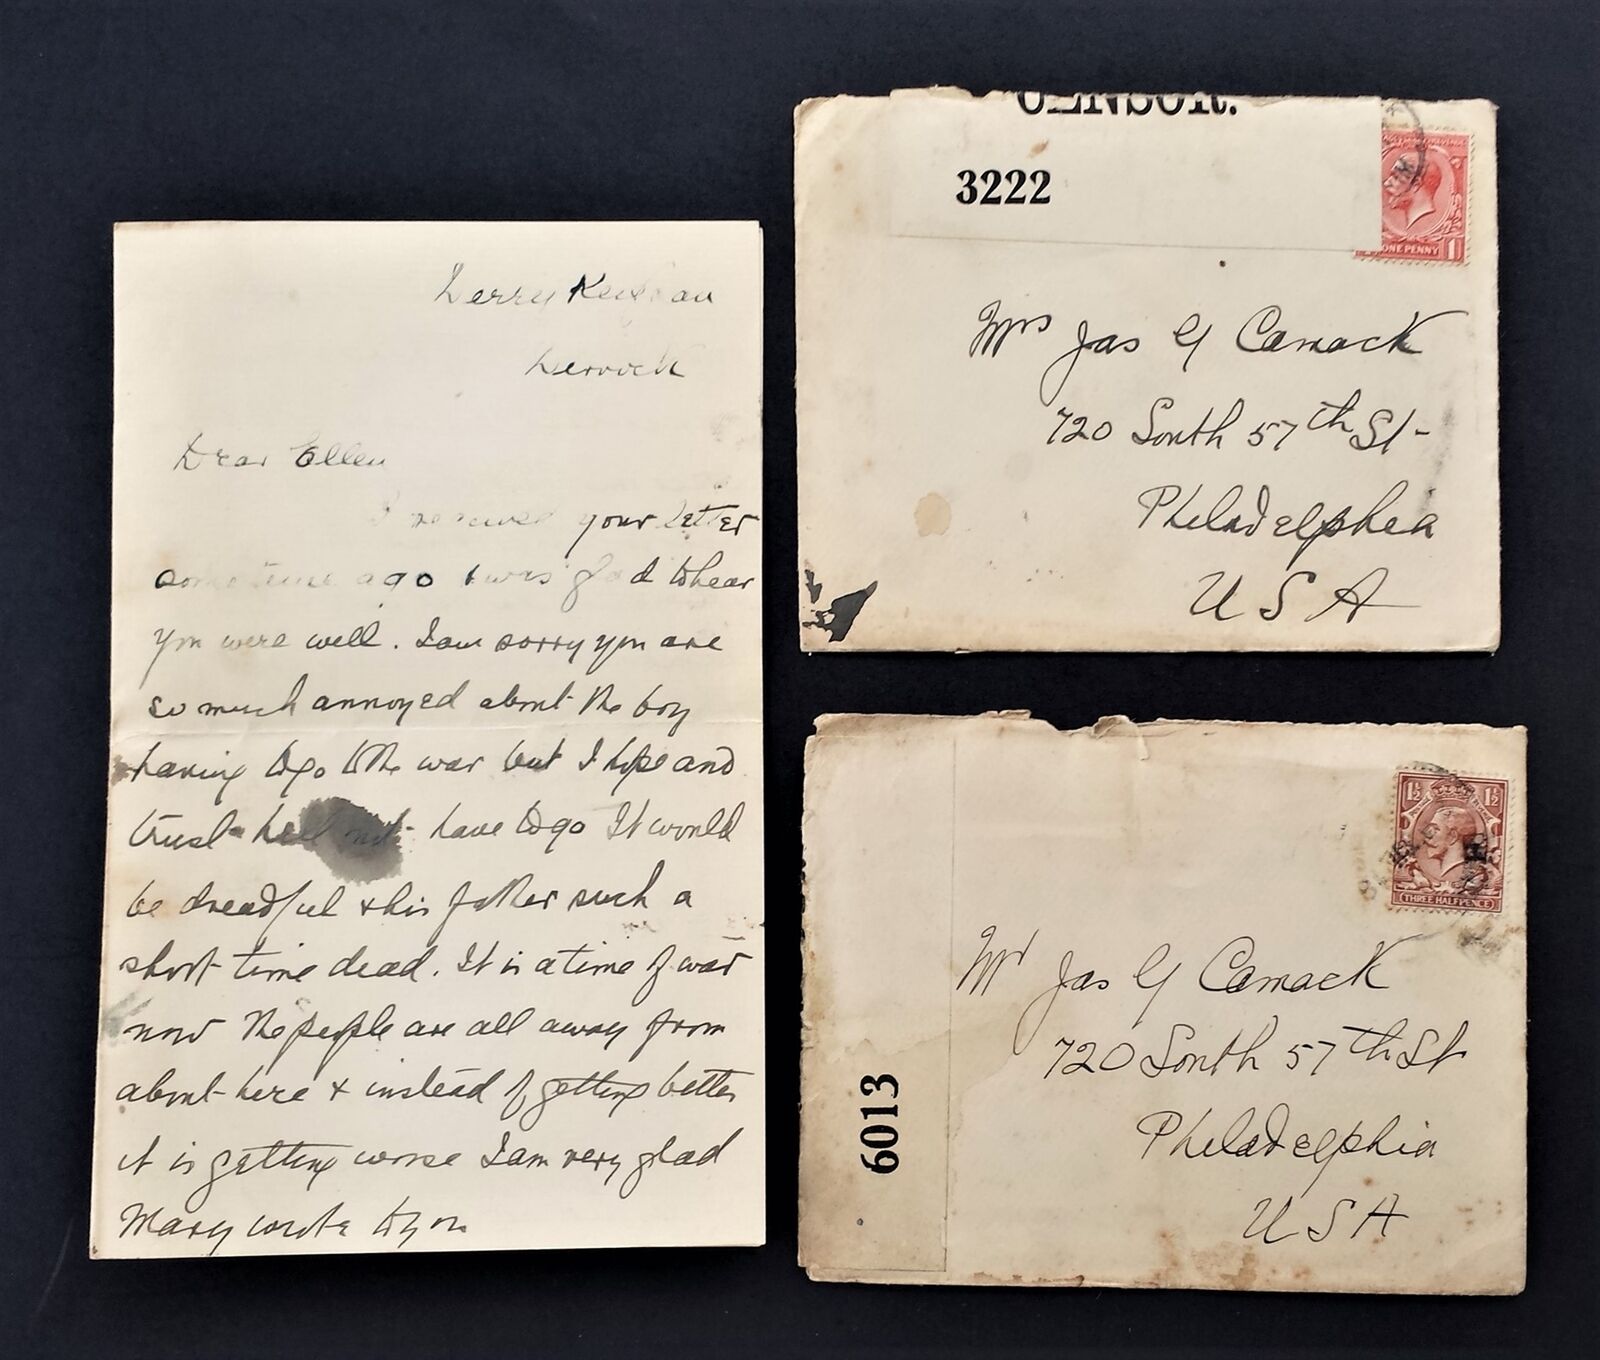 Derry
Dervock
Dear Ellen
I received your letter
sometime ago & was glad to hear
you were well. I am sorry you are
so much annoyed about the boy
having to go to the war but I hope and
trust he'll not have to go It would
be dreadful & his father such a
short time dead. It is a time of war
now the people are all away from
about here & instead of getting better
it is getting worse I am very glad
Mary wrote to you
CENSOR.
3222
ONE PENNY 1
Mrs Jas G Camack
720 South 57th St-
Philadelphia
U S A
1½ 1½
THREE HALFPENCE
Mr Jas G Camack
720 South 57th St
Philadelphia
U S A
6013